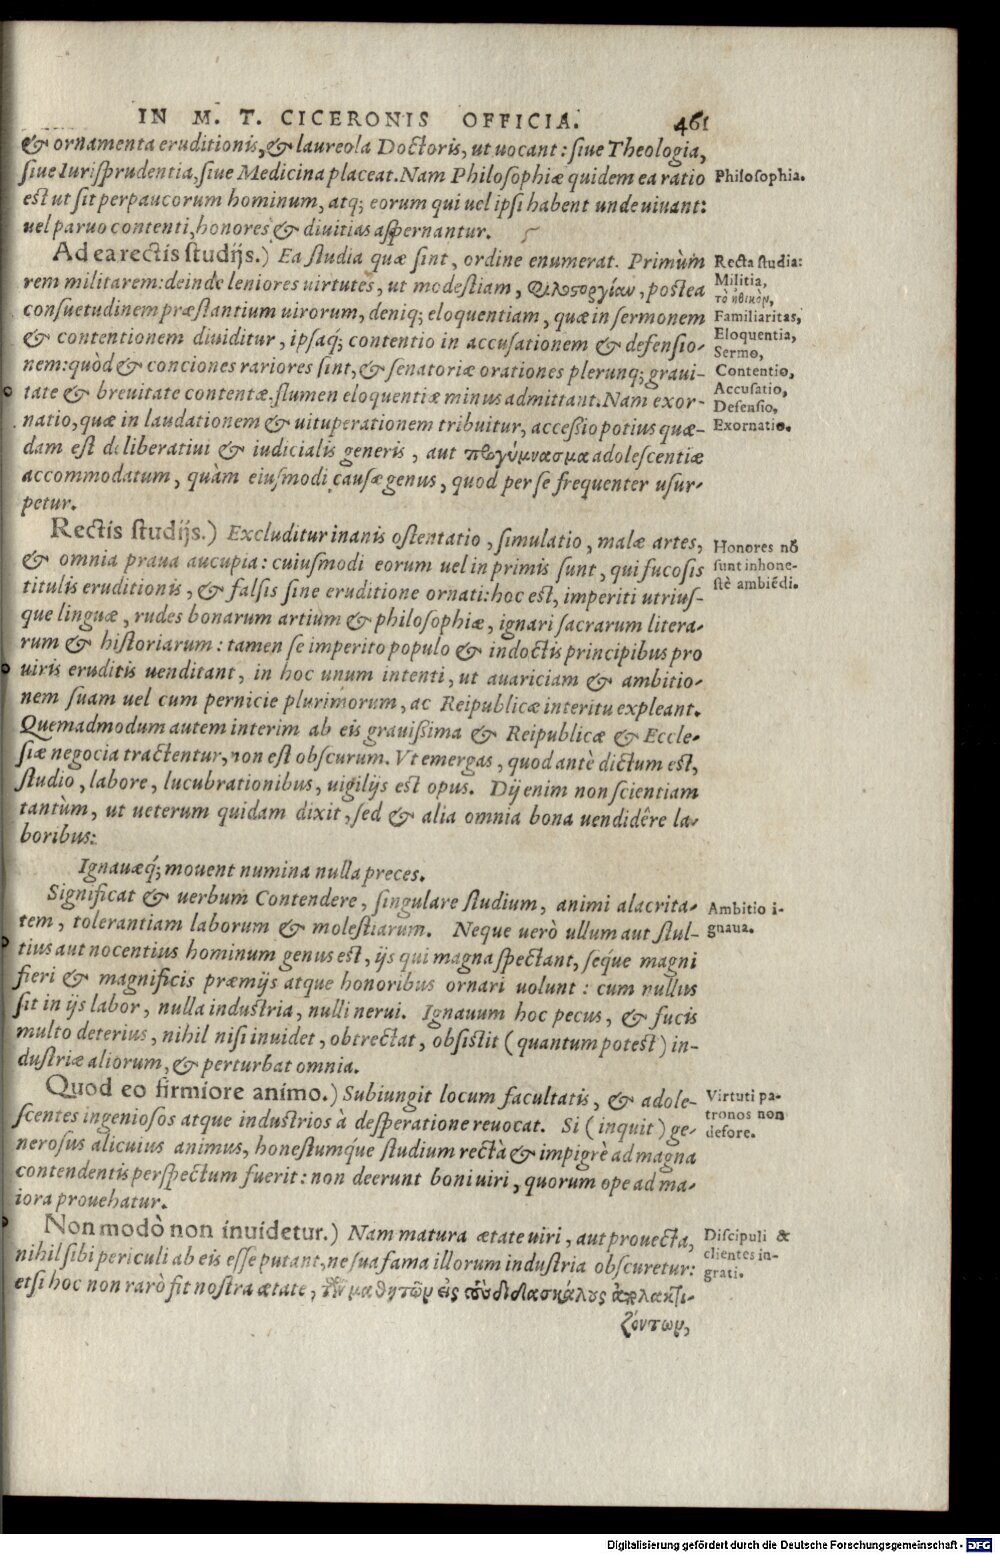 IN M. T. CICERONIS OFFICIA. 461
& ornamenta eruditionis, & laureola Doctoris, ut uocant: siue Theologia,
siue Iurisprudentia, siue Medicina placeat. Nam Philosophiæ quidem ea ratio
est ut sit perpaucorum hominum, atq; eorum qui uel ipsi habent unde uiuant:
uel paruo contenti, honores & diuitias aspernantur.
Philosophia.
Ad ea rectis studijs.) Ea studia quæ sint, ordine enumerat. Primùm
rem militarem: deinde leniores uirtutes, ut modestiam, φιλοσοργίαν, postea
consuetudinem præstantium uirorum, deniq; eloquentiam, quæ in sermonem
& contentionem diuiditur, ipsaq́; contentio in accusationem & defensio-
nem: quòd & conciones rariores sint, & senatoriæ orationes plerunq; graui-
tate & breuitate contentæ, flumen eloquentiæ minus admittant. Nam exor-
natio, quæ in laudationem & uituperationem tribuitur, accessio potius quæ-
dam est deliberatiui & iudicialis generis, aut προγύμνασμα adolescentiæ
accommodatum, quàm eiusmodi causæ genus, quod per se frequenter usur-
petur.
Recta studia:
Militia,
τὸ ἠθικὸν,
Familiaritas,
Eloquentia,
Sermo,
Contentio,
Accusatio,
Defensio,
Exornatio.
Rectis studijs.) Excluditur inanis ostentatio, simulatio, malæ artes,
& omnia praua aucupia: cuiusmodi eorum uel in primis sunt, qui fucosis
titulis eruditionis, & falsis sine eruditione ornati: hoc est, imperiti utrius-
que linguæ, rudes bonarum artium & philosophiæ, ignari sacrarum litera-
rum & historiarum: tamen se imperito populo & indoctis principibus pro
uiris eruditis uenditant, in hoc unum intenti, ut auariciam & ambitio-
nem suam uel cum pernicie plurimorum, ac Reipublicæ interitu expleant.
Quemadmodum autem interim ab eis grauissima & Reipublicæ & Eccle-
siæ negocia tractentur, non est obscurum. Vt emergas, quod antè dictum est,
studio, labore, lucubrationibus, uigilijs est opus. Dij enim non scientiam
tantùm, ut ueterum quidam dixit, sed & alia omnia bona uendidêre la-
boribus:
Honores nō
sunt inhone-
stè ambiēdi.
Ignauæq́; mouent numina nulla preces.
Significat & uerbum Contendere, singulare studium, animi alacrita-
tem, tolerantiam laborum & molestiarum. Neque uerò ullum aut stul-
tius aut nocentius hominum genus est, ijs qui magna spectant, seque magni
fieri & magnificis præmijs atque honoribus ornari uolunt: cum nullus
sit in ijs labor, nulla industria, nulli nerui. Ignauum hoc pecus, & fucis
multo deterius, nihil nisi inuidet, obtrectat, obsistit (quantum potest) in-
dustriæ aliorum, & perturbat omnia.
Ambitio i-
gnaua.
Quod eo firmiore animo.) Subiungit locum facultatis, & adole-
scentes ingeniosos atque industrios à desperatione reuocat. Si (inquit) ge-
nerosus alicuius animus, honestumque studium rectà & impigrè ad magna
contendentis perspectum fuerit: non deerunt boni uiri, quorum ope ad ma-
iora prouehatur.
Virtuti pa-
tronos non
defore.
Non modò non inuidetur.) Nam matura ætate uiri, aut prouecta,
nihil sibi periculi ab eis esse putant, ne sua fama illorum industria obscuretur:
etsi hoc non rarò fit nostra ætate, τῶν μαθητῶν εἰς τοὺς διδασκάλους ἀπολακτι-
ζόντων,
Discipuli &
clientes in-
grati.
Digitalisierung gefördert durch die Deutsche Forschungsgemeinschaft - DFG